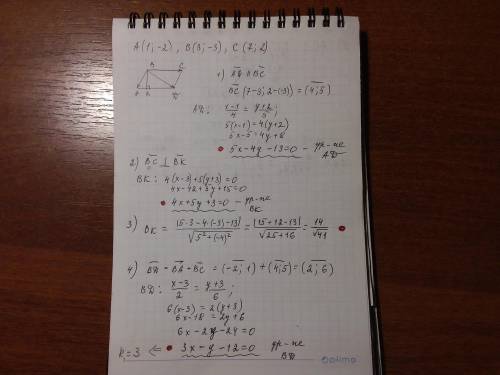 A(1; -2), B(3; -3), C(7; 2)
B C
A K D
1) AD || BC
BC (7-3; 2-(-3)) = (4; 5)
AD: x-1/4 = y+2/5;
5(x-1) = 4(y+2)
5x-5 = 4y+8
5x-4y-13=0 - ур-ие AD
2) BC ⊥ BK
BK: 4(x-3)+5(y+3)=0
4x-12+5y+15=0
4x+5y+3=0 - ур-ие BK
3) BK = |5·3-4·(-3)-13|/√(5²+(-4)²) = |15+12-13|/√(25+16) = 14/√41
4) BD = BA + BC = (-2; 1) + (4; 5) = (2; 6)
BD: x-3/2 = y+3/6;
6(x-3) = 2(y+3)
6x-18 = 2y+6
6x-2y-24=0
k=3 ⇐ 3x-y-12=0 ур-ие BD
olimp